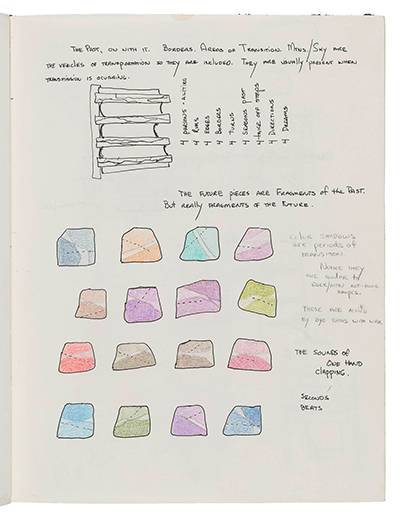 The Past, on with it. Borders. Areas of Transition. Mtns/Sky are
the vehicles of transformation so they are included. They are usually present when
transmission is occuring.
4 Rims
4 Edges
4 Borders
4 Turns
4 Seasons Past
4 Take off Steps
4 Directions
4 Dreams
The future pieces are fragments of the Past.
But really fragments of the Future.
Color shadows
are periods of
transition.
Notice they
are similar to
shapes.
These are
by with wax
The sounds of
one hand
clapping.
Seconds
Beats